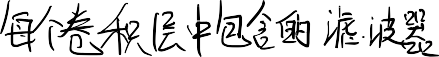 每个卷积层中包含的滤波器